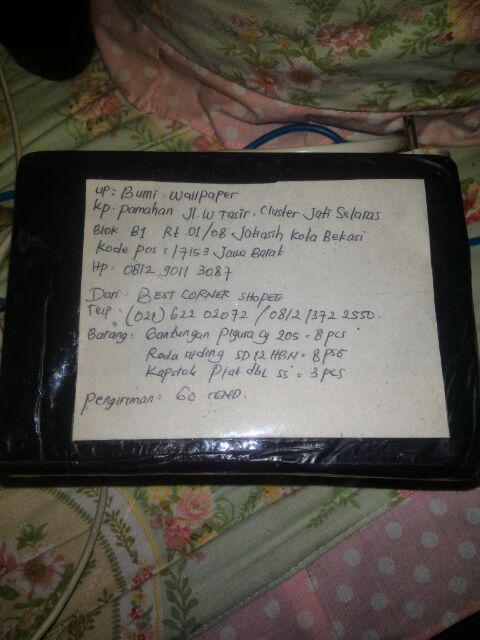 up: Bumi. Wallpaper
Kp. pamahan Jl. W Tasir, Cluster Jati Selaras
Blok B1 Rt. 01/08 Jatiasih Kota Bekasi
Kode pos : 17153 Jawa Barat
Hp: 0812 9011 3087
Dari: BEST CORNER SHOPEE
Telp: (021) 622 02072 / 0812 1372 2550.
Barang: Gantungan Pigura cy 205 = 8 pcs
Roda sliding SD12 HBN = 8 pse
Kapstok Plat dbL ss = 3 pcs
pengiriman: GO SEND.